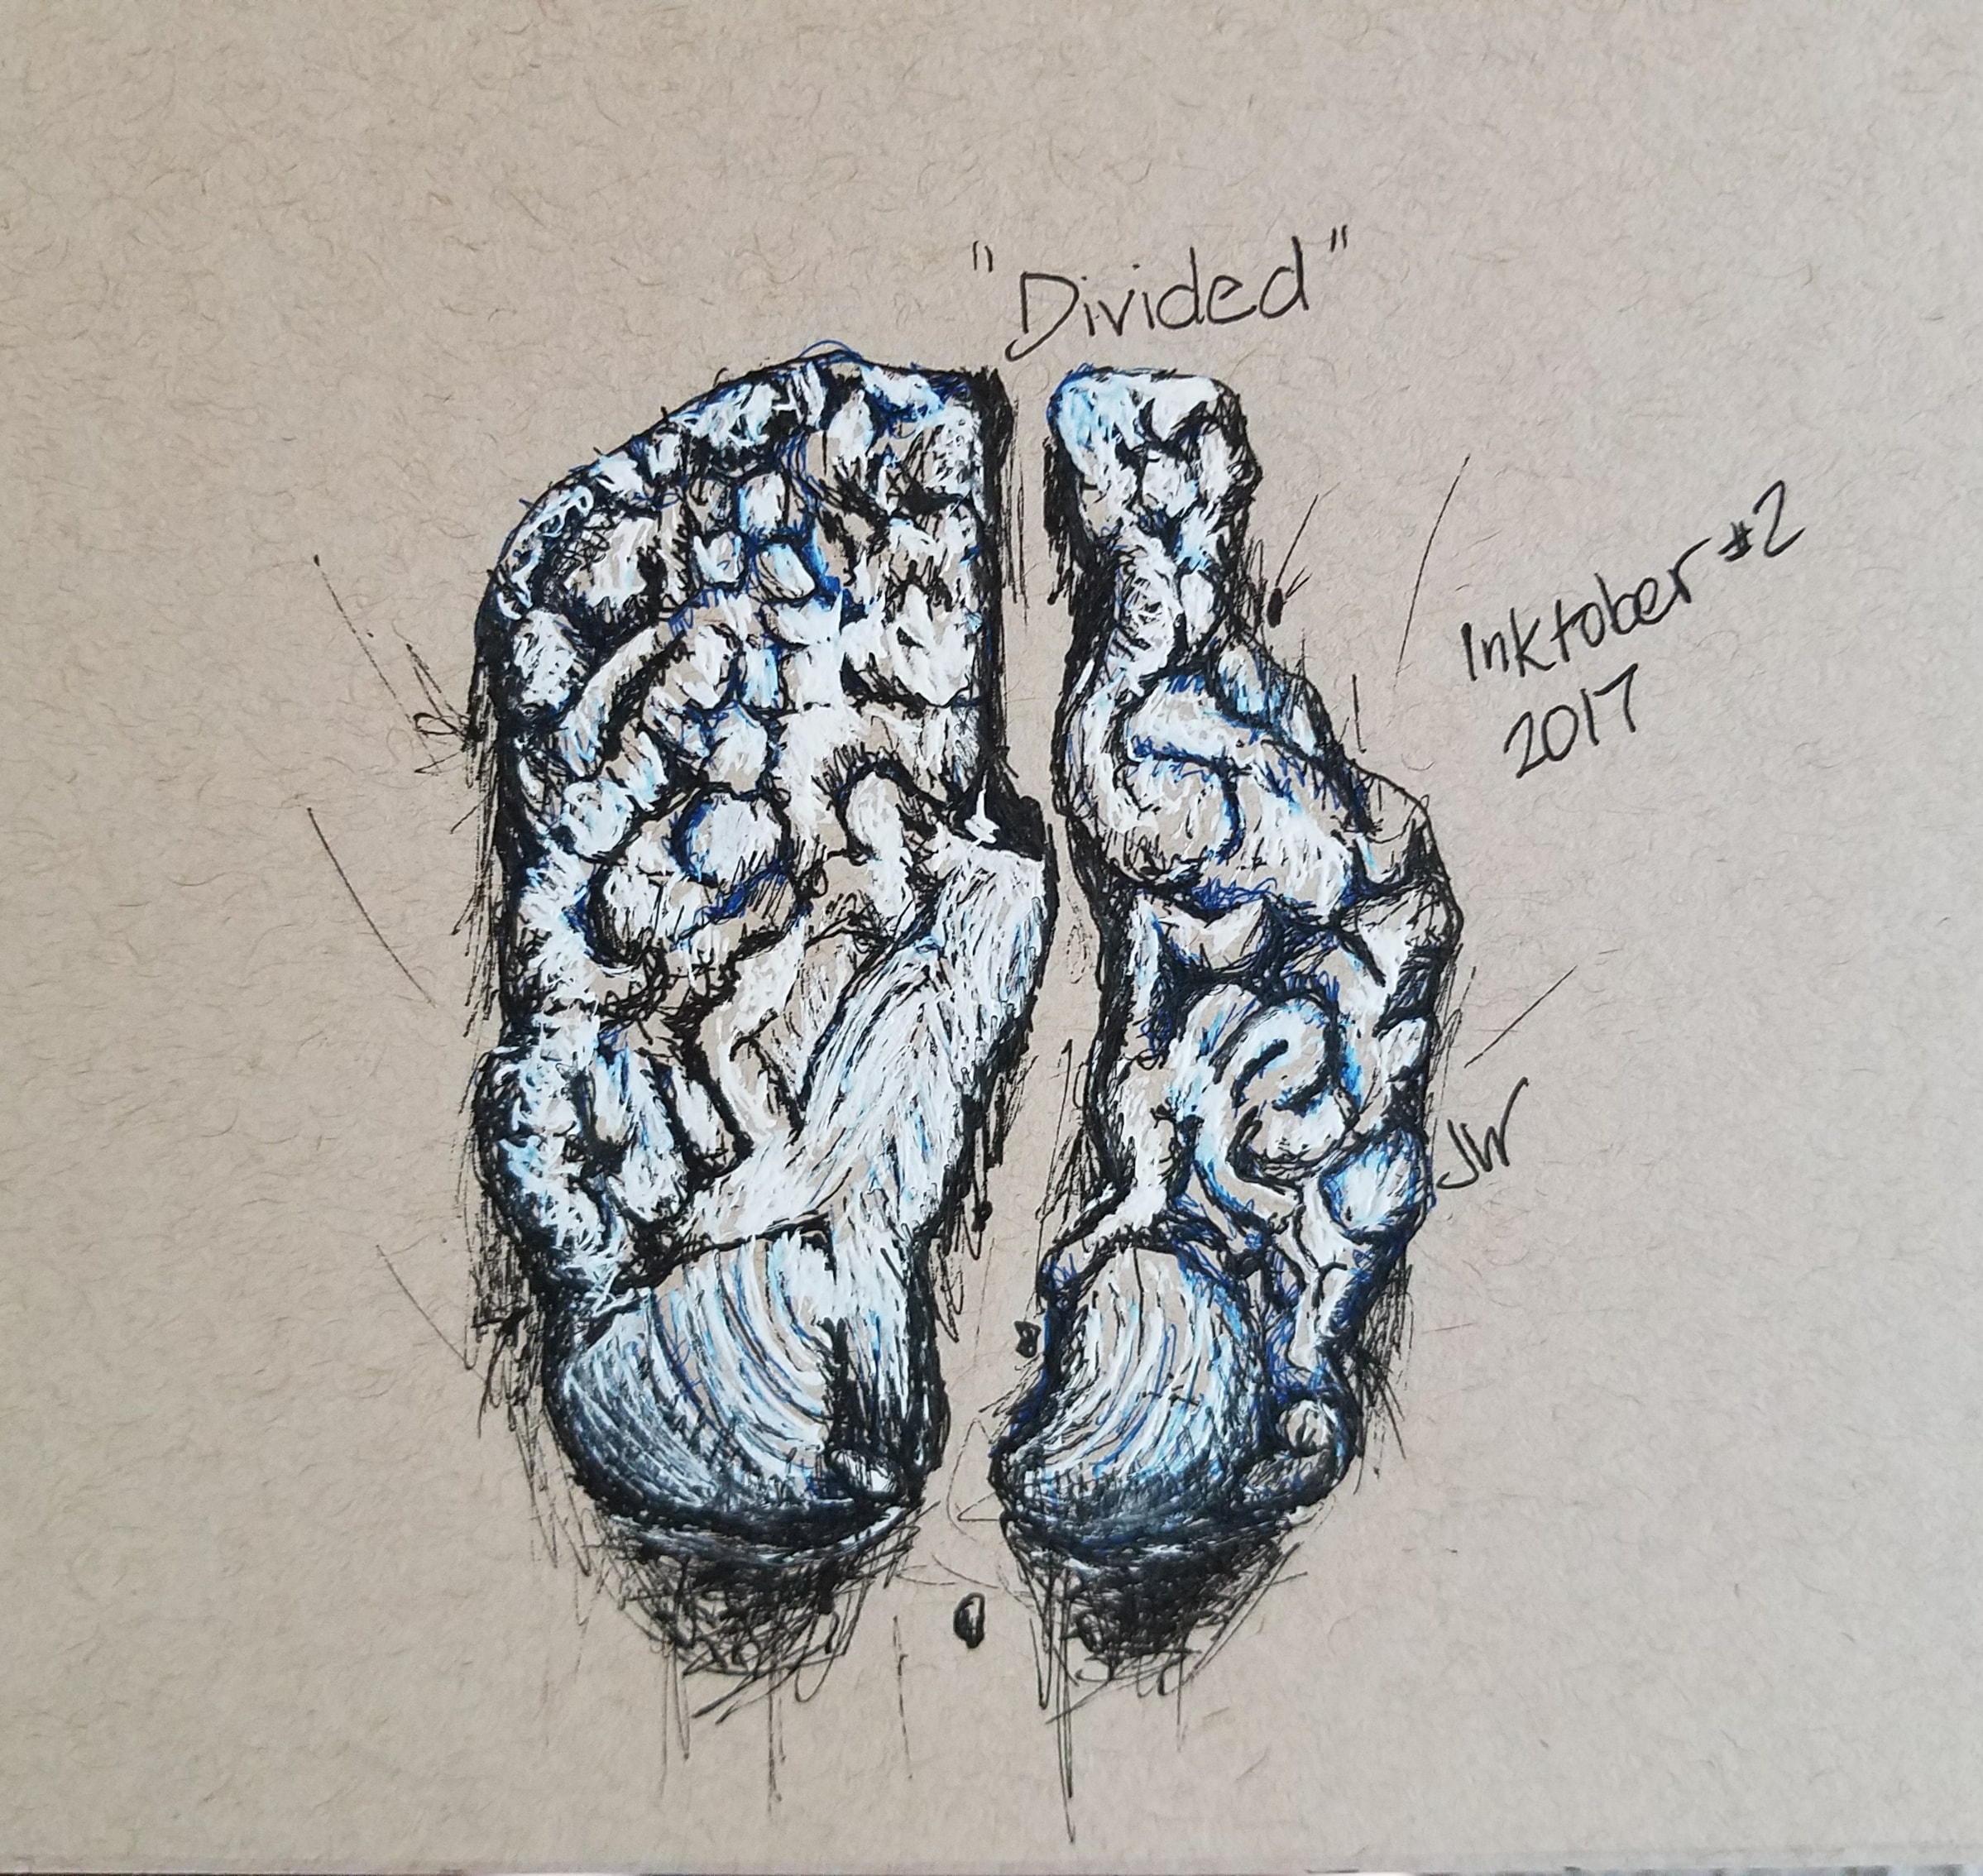 "Divided"
Inktober #2
2017
JW